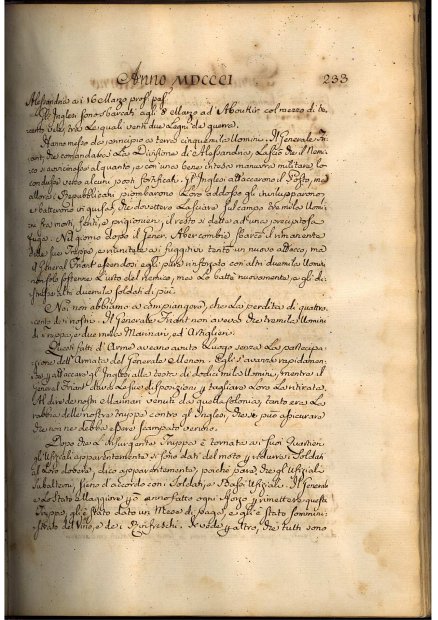 Anno MDCCCI 233
Alessandria a i 16 Marzo prof. pas.
Gl'Inglesi sono sbarcati agli 8 Marzo ad Aboukir col mezzo di tre
cento vele, tra le quali venti due Legni da guerra.
Hanno messo da principio a terra cinque mila Uomini; Il Generale Fri
ant, che comandava La Divisione di Alessandria, Lasciò che il Nemi
co si avvicinasse alquanto, e con una bene intesa manovra militare lo
condusse verso alcuni posti fortificati. Gl'Inglesi attaccarono il Posto, ma
allora i Republicani piombarono Loro addosso gli invilupparono
e batterono in guisa, che dovettero Lasciare sul campo tre mila Uomi
ni tra morti, feriti, e prigionieri, il resto si dette ad una precipitosa
fuga. Nel giorno dopo il Gener. Abercombie sbarcò il rimanente
delle sue Truppe, e riunitele ai fuggitivi tentò un nuovo attacco, ma
il General Friant essendosi egli pure rinforzato con altri due mila Uomini
non solo sostenne l'urto del nemico, ma Lo battè nuovamente, e gli di
strusse altri due mila soldati di più.
Noi non abbiamo a compiangere, che La perdita di quattro
cento de' nostri. Il Generale Friant non aveva che tre mila Uomini
di Truppa, e due mila Marinari, ed Artiglieri.
Questi fatti d'Arme aveano avuto Luogo senza La partecipa
zione dell'Armata del Generale Menou. Egli s'avanza rapidamen
te, per attaccare gl'Inglesi alla testa di dodici mila Uomini, mentre il
General Friant dava Le sue disposizioni per tagliare Loro La ritirata.
Al dire de nostri Marinari venuti da quella Colonia, tanto era La
rabbia delle nostre truppe contro gl'Inglesi, che si può assicurare
che non ne debba essere scampato veruno.
Dopo che L'Insurgente Truppa è tornata ai suoi Quartieri
gli Ufiziali apparentemente si sono dati del moto per ridurre i Soldati
al Loro dovere, dico apparentemente, poichè pare, che gl'Ufiziali
subalterni, sieno d'accordo con i Soldati, e Bassi Ufiziali. Il Generale
e Lo Stato Maggiore per anno fatto ogni sforzo per rimettere questa
Truppa, gli è stato dato un Mese di paga, e gli è stato sommini
strato del Vino, e de i Rinfreschi. Si vede per altro, che tutti sono